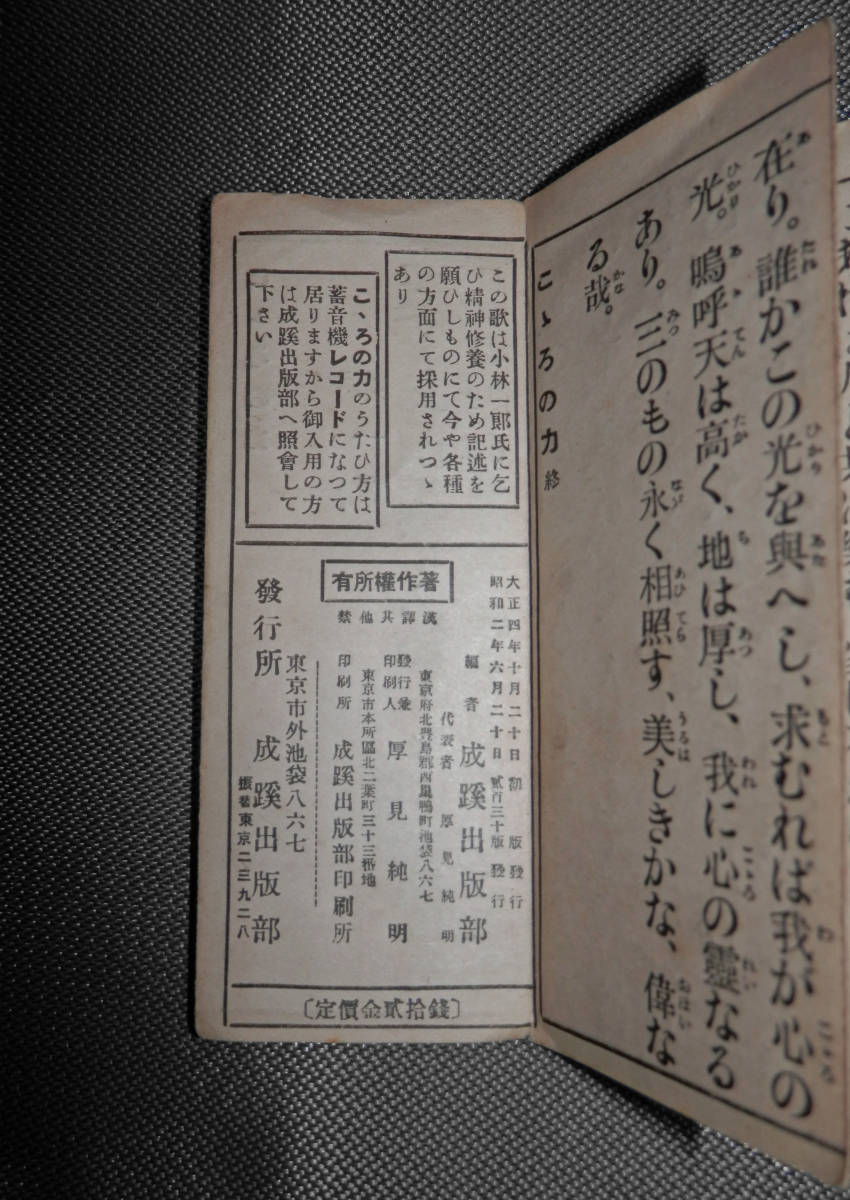 在り。誰かこの光を與へし、求むれば我が心の
光。嗚呼天は高く、地は厚し、我に心の靈なる
あり。三のもの永く相照す、美しきかな、偉な
る哉。
こゝろの力 終
この歌は小林一郞氏に乞
ひ精神修養のため記述を
願ひしものにて今や各種
の方面にて採用されつゝ
あり
こゝろの力のうたひ方は
蓄音機レコードになつて
居りますから御入用の方
は成蹊出版部へ照會して
下さい
大正四年十月二十日 初版發行
昭和二年六月二十日 貳百三十版發行
編者 成蹊出版部
代表者 厚見純明
東京府北豐島郡西巢鴨町池袋八六七
發行兼印刷人 厚見純明
東京市本所區北二葉町三十三番地
印刷所 成蹊出版部印刷所
有所權作著
禁他其譯漢
東京市外池袋八六七
發行所 成蹊出版部
振替東京二三九二八
〔定價金貳拾錢〕